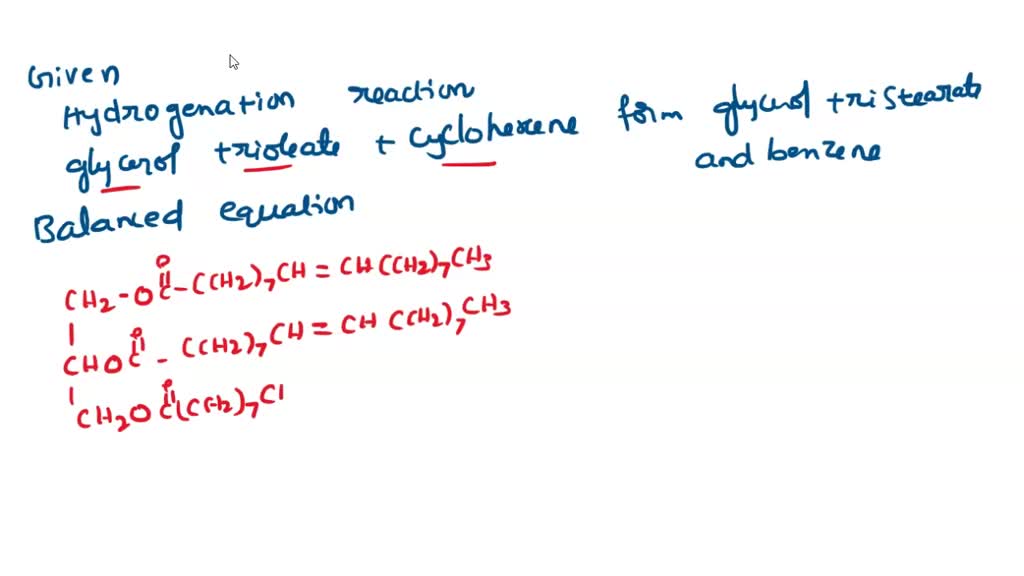 Given
Hydrogenation reaction
glycerol trioleate + cyclohexene form glycerol tristearate
and benzene
Balanced equation
CH2-OC(=O)-(CH2)7CH=CH(CH2)7CH3
|
CHOC(=O)-(CH2)7CH=CH(CH2)7CH3
|
CH2OC(=O)(CH2)7C